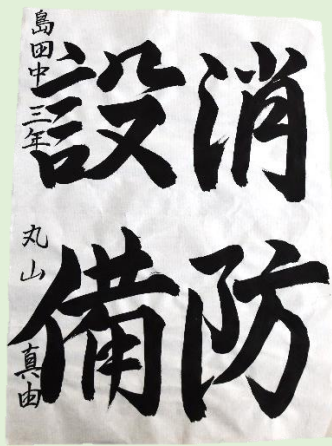 消防
設備
島田中三年 丸山 真由